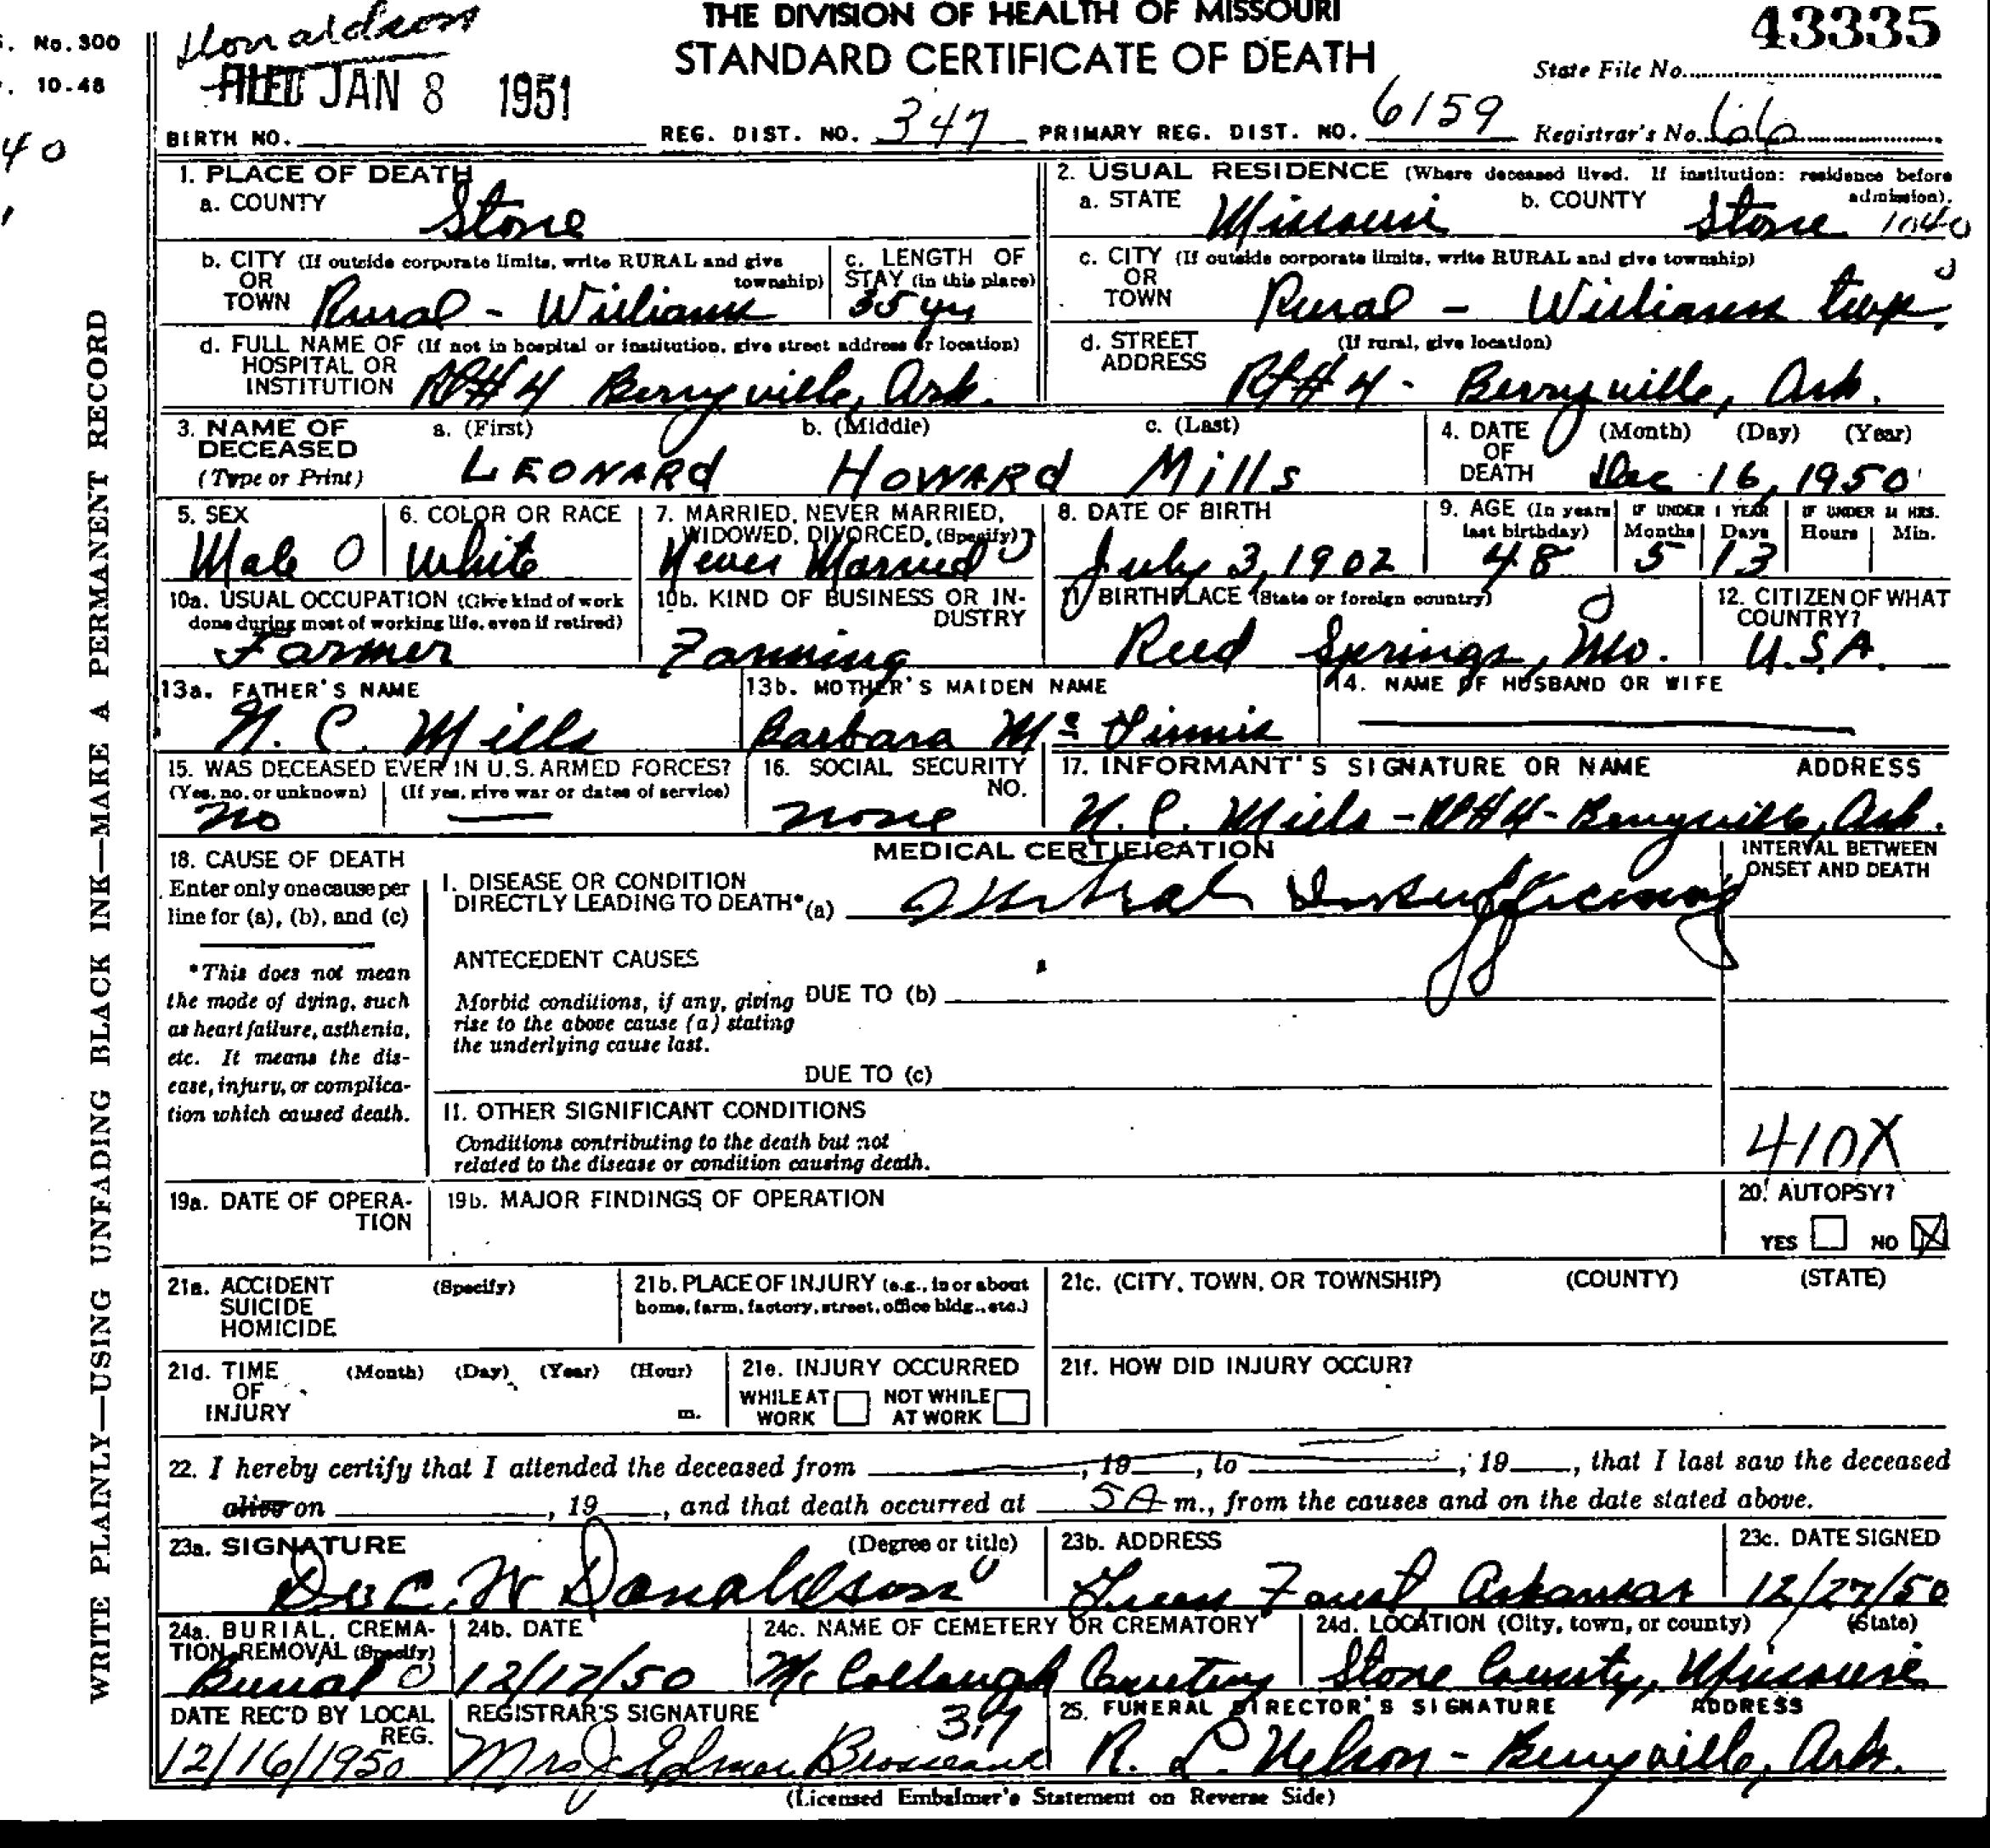 Donaldson
THE DIVISION OF HEALTH OF MISSOURI
STANDARD CERTIFICATE OF DEATH
43335
State File No.
No. 300
10-48
FILED JAN 8 1951
BIRTH NO.
REG. DIST. NO. 347
PRIMARY REG. DIST. NO. 6159
Registrar's No. 66
40
1. PLACE OF DEATH
a. COUNTY
Stone
2. USUAL RESIDENCE (Where deceased lived. If institution: residence before admission).
a. STATE Missouri
b. COUNTY Stone 1040
b. CITY (If outside corporate limits, write RURAL and give township)
OR
TOWN Rural - Williams
c. LENGTH OF
STAY (in this place)
35 yrs
c. CITY (If outside corporate limits, write RURAL and give township)
OR
TOWN Rural - Williams twp
d. FULL NAME OF (If not in hospital or institution, give street address or location)
HOSPITAL OR
INSTITUTION Rt #4 Berryville, Ark.
d. STREET (If rural, give location)
ADDRESS Rt #4 - Berryville, Ark.
3. NAME OF
DECEASED
(Type or Print)
a. (First) b. (Middle) c. (Last)
LEONARd HOWARd Mills
4. DATE (Month) (Day) (Year)
OF
DEATH Dec 16, 1950
5. SEX
Male 0
6. COLOR OR RACE
White
7. MARRIED, NEVER MARRIED,
WIDOWED, DIVORCED, (Specify)
Never Married
8. DATE OF BIRTH
July 3, 1902
9. AGE (In years
last birthday)
48
IF UNDER 1 YEAR
Months Days
5 13
IF UNDER 24 HRS.
Hours Min.
10a. USUAL OCCUPATION (Give kind of work
done during most of working life, even if retired)
Farmer
10b. KIND OF BUSINESS OR IN-
DUSTRY
Farming
11. BIRTHPLACE (State or foreign country)
Reed Springs, Mo.
12. CITIZEN OF WHAT
COUNTRY?
U.S.A.
13a. FATHER'S NAME
N. C. Mills
13b. MOTHER'S MAIDEN NAME
Barbara
14. NAME OF HUSBAND OR WIFE
15. WAS DECEASED EVER IN U.S. ARMED FORCES?
(Yes, no, or unknown) (If yes, give war or dates of service)
no
16. SOCIAL SECURITY
NO.
none
17. INFORMANT'S SIGNATURE OR NAME ADDRESS
N. C. Mills - Rt #4 - Berryville, Ark.
MEDICAL CERTIFICATION
18. CAUSE OF DEATH
Enter only one cause per
line for (a), (b), and (c)
*This does not mean
the mode of dying, such
as heart failure, asthenia,
etc. It means the dis-
ease, injury, or complica-
tion which caused death.
I. DISEASE OR CONDITION
DIRECTLY LEADING TO DEATH* (a) Mitral Insufficiency
INTERVAL BETWEEN
ONSET AND DEATH
ANTECEDENT CAUSES
Morbid conditions, if any, giving
rise to the above cause (a) stating
the underlying cause last.
DUE TO (b)
DUE TO (c)
II. OTHER SIGNIFICANT CONDITIONS
Conditions contributing to the death but not
related to the disease or condition causing death.
410X
19a. DATE OF OPERA-
TION
19b. MAJOR FINDINGS OF OPERATION
20. AUTOPSY?
YES NO X
21a. ACCIDENT (Specify)
SUICIDE
HOMICIDE
21b. PLACE OF INJURY (e.g., in or about
home, farm, factory, street, office bldg., etc.)
21c. (CITY, TOWN, OR TOWNSHIP) (COUNTY) (STATE)
21d. TIME (Month) (Day) (Year) (Hour)
OF
INJURY m.
21e. INJURY OCCURRED
WHILE AT WORK NOT WHILE AT WORK
21f. HOW DID INJURY OCCUR?
22. I hereby certify that I attended the deceased from , 19 , to , 19 , that I last saw the deceased
alive on , 19 , and that death occurred at 5A m., from the causes and on the date stated above.
23a. SIGNATURE (Degree or title)
Dr C. W Donaldson
23b. ADDRESS
Green Forest Arkansas
23c. DATE SIGNED
12/27/50
24a. BURIAL, CREMA-
TION, REMOVAL (Specify)
Burial
24b. DATE
12/17/50
24c. NAME OF CEMETERY OR CREMATORY
McCollough Cemetery
24d. LOCATION (City, town, or county) (State)
Stone County, Missouri
DATE REC'D BY LOCAL
REG.
12/16/1950
REGISTRAR'S SIGNATURE
Mrs J Elmer
25. FUNERAL DIRECTOR'S SIGNATURE ADDRESS
R. L. Nelson - Berryville, Ark.
(Licensed Embalmer's Statement on Reverse Side)
WRITE PLAINLY—USING UNFADING BLACK INK—MAKE A PERMANENT RECORD